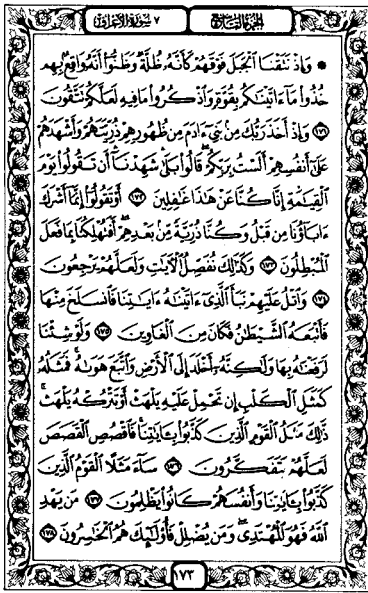 الجزء التاسع ٧ سورة الأعراف
۞ وَإِذْ نَتَقْنَا ٱلْجَبَلَ فَوْقَهُمْ كَأَنَّهُۥ ظُلَّةٌ وَظَنُّوٓا۟ أَنَّهُۥ وَاقِعٌۢ بِهِمْ
خُذُوا۟ مَآ ءَاتَيْنَـٰكُم بِقُوَّةٍ وَٱذْكُرُوا۟ مَا فِيهِ لَعَلَّكُمْ تَتَّقُونَ
١٧١ وَإِذْ أَخَذَ رَبُّكَ مِنۢ بَنِىٓ ءَادَمَ مِن ظُهُورِهِمْ ذُرِّيَّتَهُمْ وَأَشْهَدَهُمْ
عَلَىٰٓ أَنفُسِهِمْ أَلَسْتُ بِرَبِّكُمْ ۖ قَالُوا۟ بَلَىٰ ۛ شَهِدْنَآ ۛ أَن تَقُولُوا۟ يَوْمَ
ٱلْقِيَـٰمَةِ إِنَّا كُنَّا عَنْ هَـٰذَا غَـٰفِلِينَ ١٧٢ أَوْ تَقُولُوٓا۟ إِنَّمَآ أَشْرَكَ
ءَابَآؤُنَا مِن قَبْلُ وَكُنَّا ذُرِّيَّةً مِّنۢ بَعْدِهِمْ ۖ أَفَتُهْلِكُنَا بِمَا فَعَلَ
ٱلْمُبْطِلُونَ ١٧٣ وَكَذَٰلِكَ نُفَصِّلُ ٱلْـَٔايَـٰتِ وَلَعَلَّهُمْ يَرْجِعُونَ
١٧٤ وَٱتْلُ عَلَيْهِمْ نَبَأَ ٱلَّذِىٓ ءَاتَيْنَـٰهُ ءَايَـٰتِنَا فَٱنسَلَخَ مِنْهَا
فَأَتْبَعَهُ ٱلشَّيْطَـٰنُ فَكَانَ مِنَ ٱلْغَاوِينَ ١٧٥ وَلَوْ شِئْنَا
لَرَفَعْنَـٰهُ بِهَا وَلَـٰكِنَّهُۥٓ أَخْلَدَ إِلَى ٱلْأَرْضِ وَٱتَّبَعَ هَوَىٰهُ ۚ فَمَثَلُهُۥ
كَمَثَلِ ٱلْكَلْبِ إِن تَحْمِلْ عَلَيْهِ يَلْهَثْ أَوْ تَتْرُكْهُ يَلْهَث ۚ
ذَّٰلِكَ مَثَلُ ٱلْقَوْمِ ٱلَّذِينَ كَذَّبُوا۟ بِـَٔايَـٰتِنَا ۚ فَٱقْصُصِ ٱلْقَصَصَ
لَعَلَّهُمْ يَتَفَكَّرُونَ ١٧٦ سَآءَ مَثَلًا ٱلْقَوْمُ ٱلَّذِينَ
كَذَّبُوا۟ بِـَٔايَـٰتِنَا وَأَنفُسَهُمْ كَانُوا۟ يَظْلِمُونَ ١٧٧ مَن يَهْدِ
ٱللَّهُ فَهُوَ ٱلْمُهْتَدِى ۖ وَمَن يُضْلِلْ فَأُو۟لَـٰٓئِكَ هُمُ ٱلْخَـٰسِرُونَ ١٧٨
١٧٣